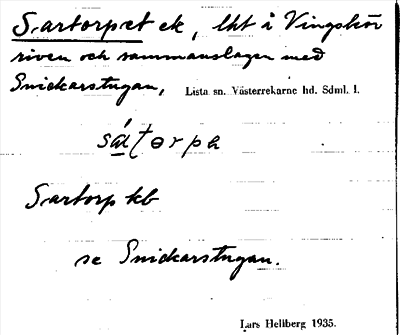 Sartorpet ek, lht å Vingskör
riven och sammanslagen med
Snickarstugan, Lista sn. Västerrekarne hd. Sdml. l.
sátorpa
Sartorp kb
se Snickarstugan.
Lars Hellberg 1935.